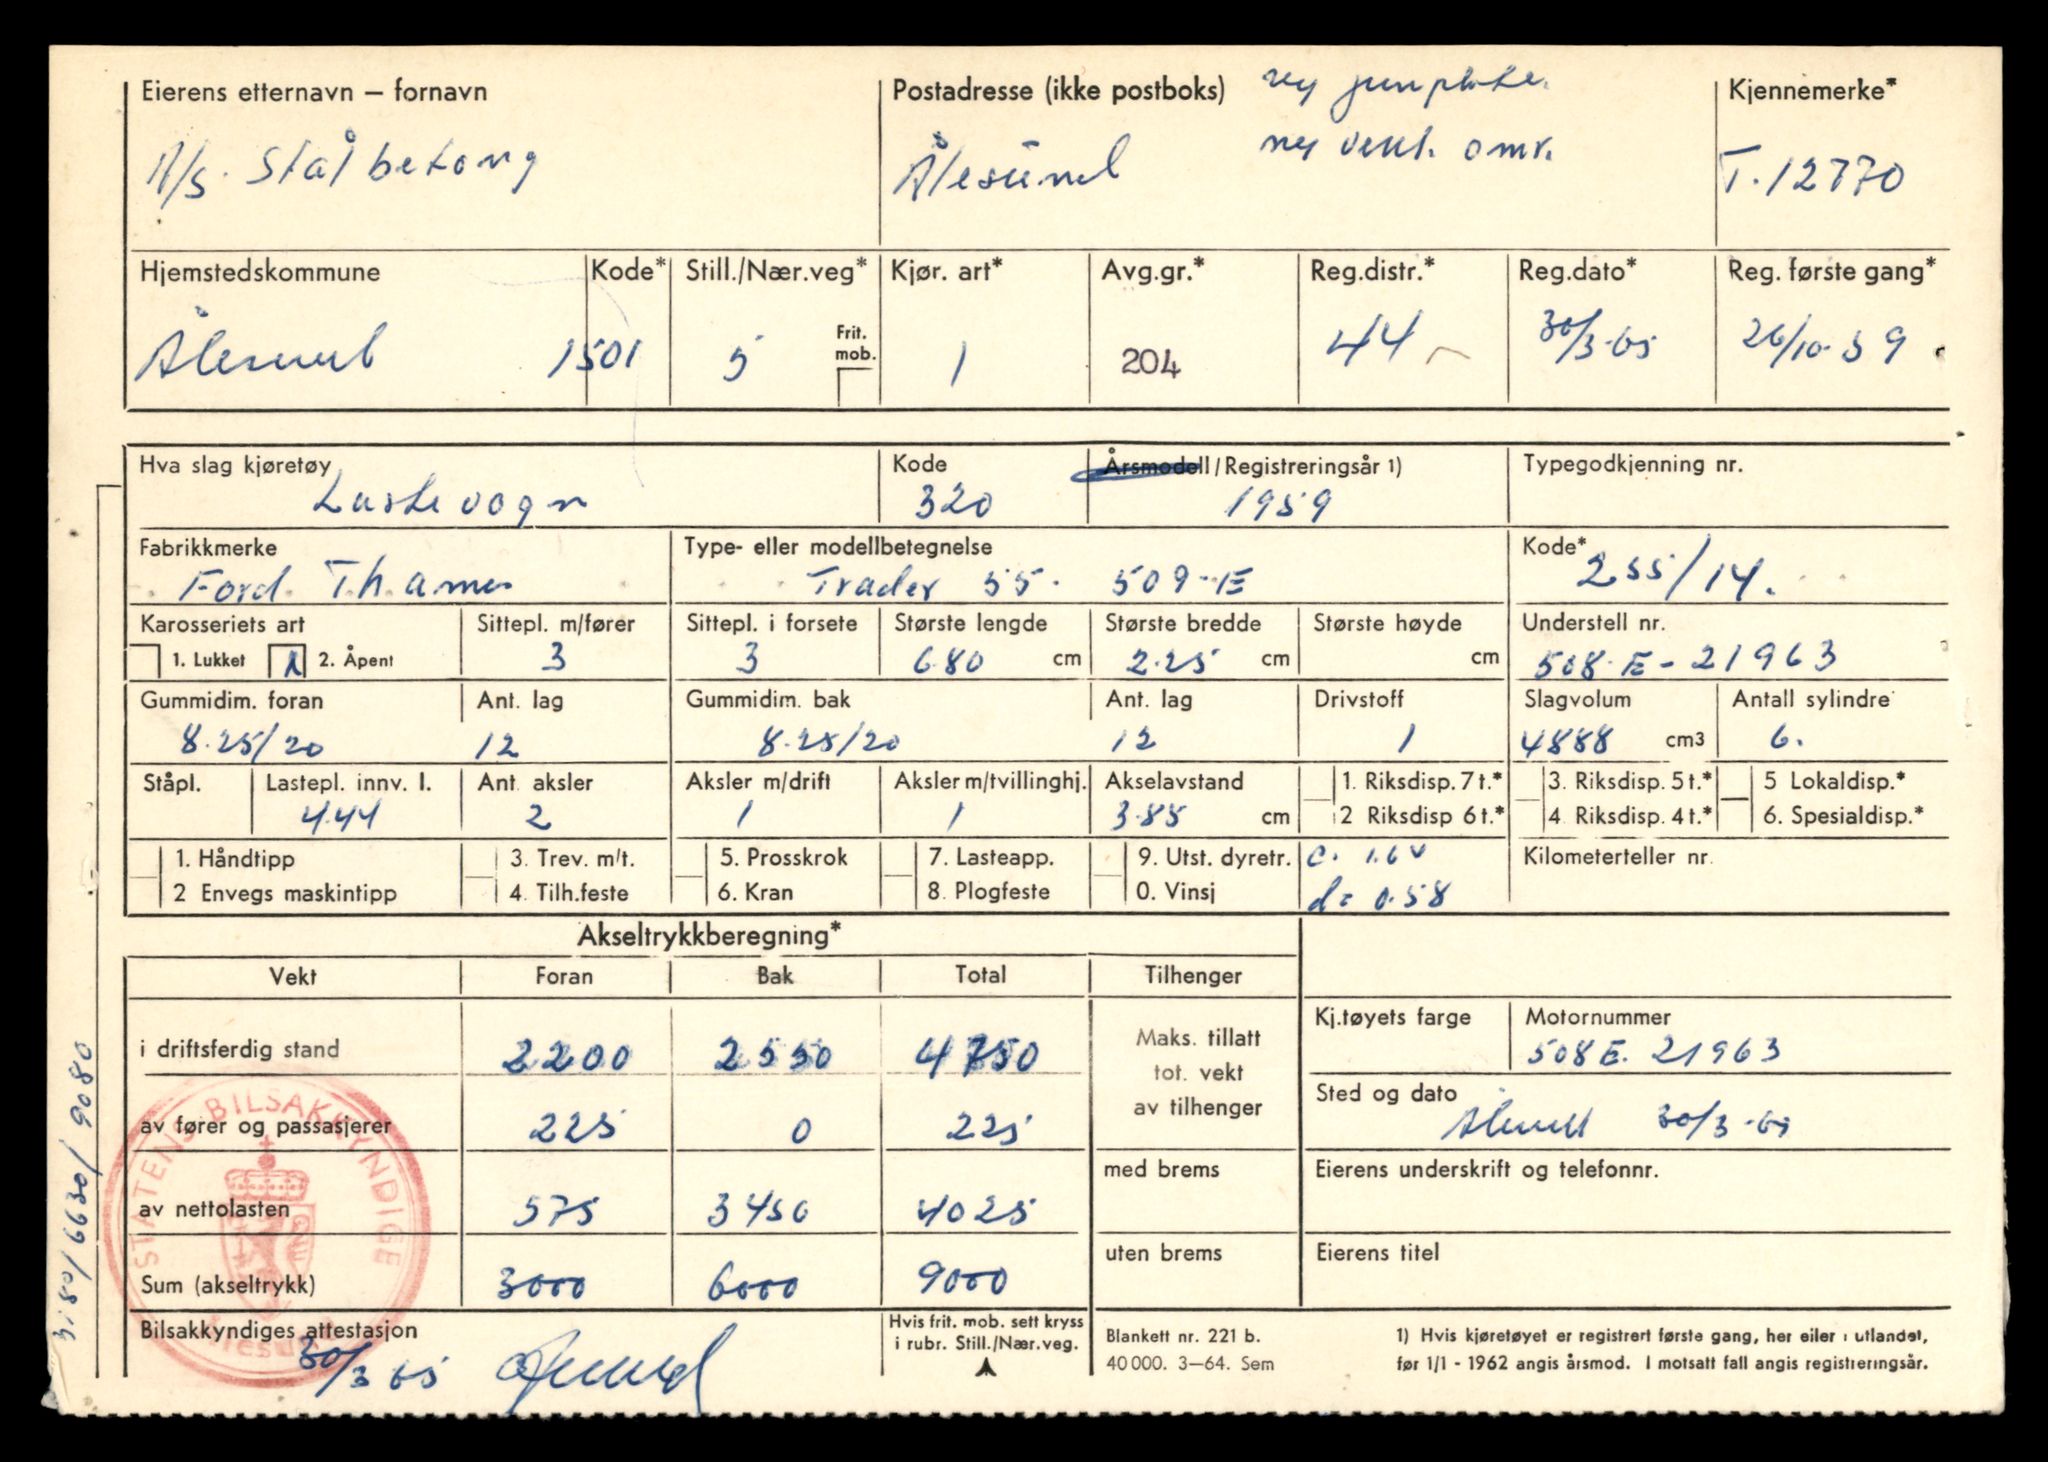 Eierens etternavn – fornavn
A/s. Stålbetong
Postadresse (ikke postboks)
ny vekt. omr.
Ålesund
Kjennemerke*
T. 12770
Hjemstedskommune
Ålesund
Kode*
1501
Still./Nær.veg*
5
Frit.
mob.
Kjør. art*
1
Avg.gr.*
204
Reg.distr.*
44
Reg.dato*
30/3-65
Reg. første gang*
26/10-59
Hva slag kjøretøy
Lastevogn
Kode
320
Årsmodell/Registreringsår 1)
1959
Typegodkjenning nr.
Fabrikkmerke
Ford Thames
Type- eller modellbetegnelse
Trader 55. 509-E
Kode*
255/14.
Karosseriets art
1. Lukket x 2. Åpent
Sittepl. m/fører
3
Sittepl. i forsete
3
Største lengde
680 cm
Største bredde
2.25 cm
Største høyde
cm
Understell nr.
508.E-21963
Gummidim. foran
8.25/20
Ant. lag
12
Gummidim. bak
8.25/20
Ant. lag
12
Drivstoff
1
Slagvolum
4888 cm3
Antall sylindre
6.
Ståpl.
Lastepl. innv. l.
4.44
Ant. aksler
2
Aksler m/drift
1
Aksler m/tvillinghj.
1
Akselavstand
3.85 cm
1. Riksdisp. 7 t.*
2 Riksdisp 6 t.*
3. Riksdisp. 5 t.*
4. Riksdisp. 4 t.*
5 Lokaldisp.*
6. Spesialdisp.*
1. Håndtipp
2 Envegs maskintipp
3. Trev. m/t.
4. Tilh.feste
5. Prosskrok
6. Kran
7. Lasteapp.
8. Plogfeste
9. Utst. dyretr.
0. Vinsj
d= 0.58
Kilometerteller nr.
Akseltrykkberegning*
Vekt Foran Bak Total Tilhenger
i driftsferdig stand 2200 2550 4750
av fører og passasjerer 225 0 225
av nettolasten 575 3450 4025
Sum (akseltrykk) 3000 6000 9000
Maks. tillatt
tot. vekt
av tilhenger
med brems
uten brems
Kj.tøyets farge
Motornummer
508E. 21963
Sted og dato
Ålesund 30/3-65
Eierens underskrift og telefonnr.
Eierens titel
Bilsakkyndiges attestasjon
30/3 65
Hvis frit. mob. sett kryss
i rubr. Still./Nær.veg.
Blankett nr. 221 b.
40 000. 3–64. Sem
1) Hvis kjøretøyet er registrert første gang, her eller i utlandet,
før 1/1 - 1962 angis årsmod. I motsatt fall angis registreringsår.
STATENS BILSAKKYNDIGE
Ålesund
3180/6630/9080